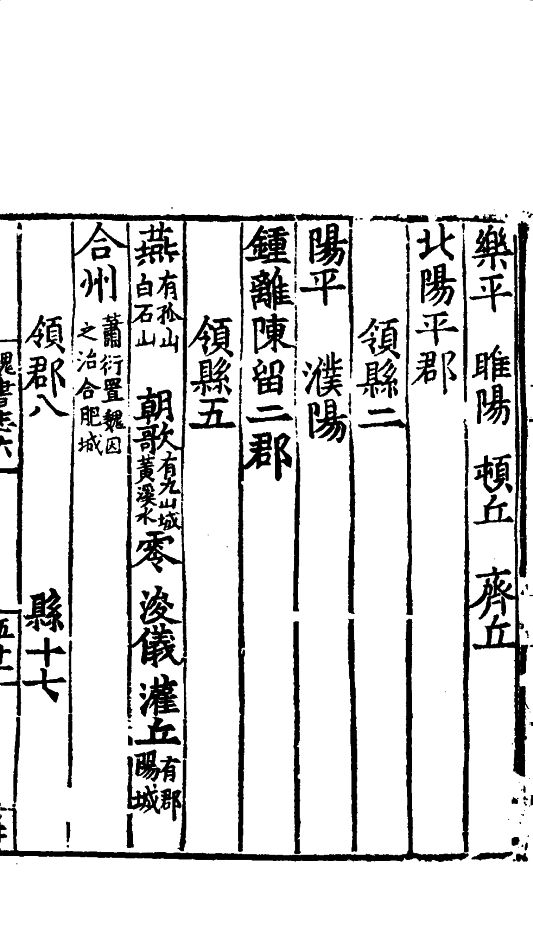 樂平　睢陽　頓丘　齊丘
北陽平郡
領縣二
陽平　濮陽
鍾離陳留二郡
領縣五
燕有孤山白石山　朝歌有九山城黃溪水零　浚儀　灌丘有郡陽城
合州蕭衍置魏因之治合肥城
領郡八　縣十七
魏書志六